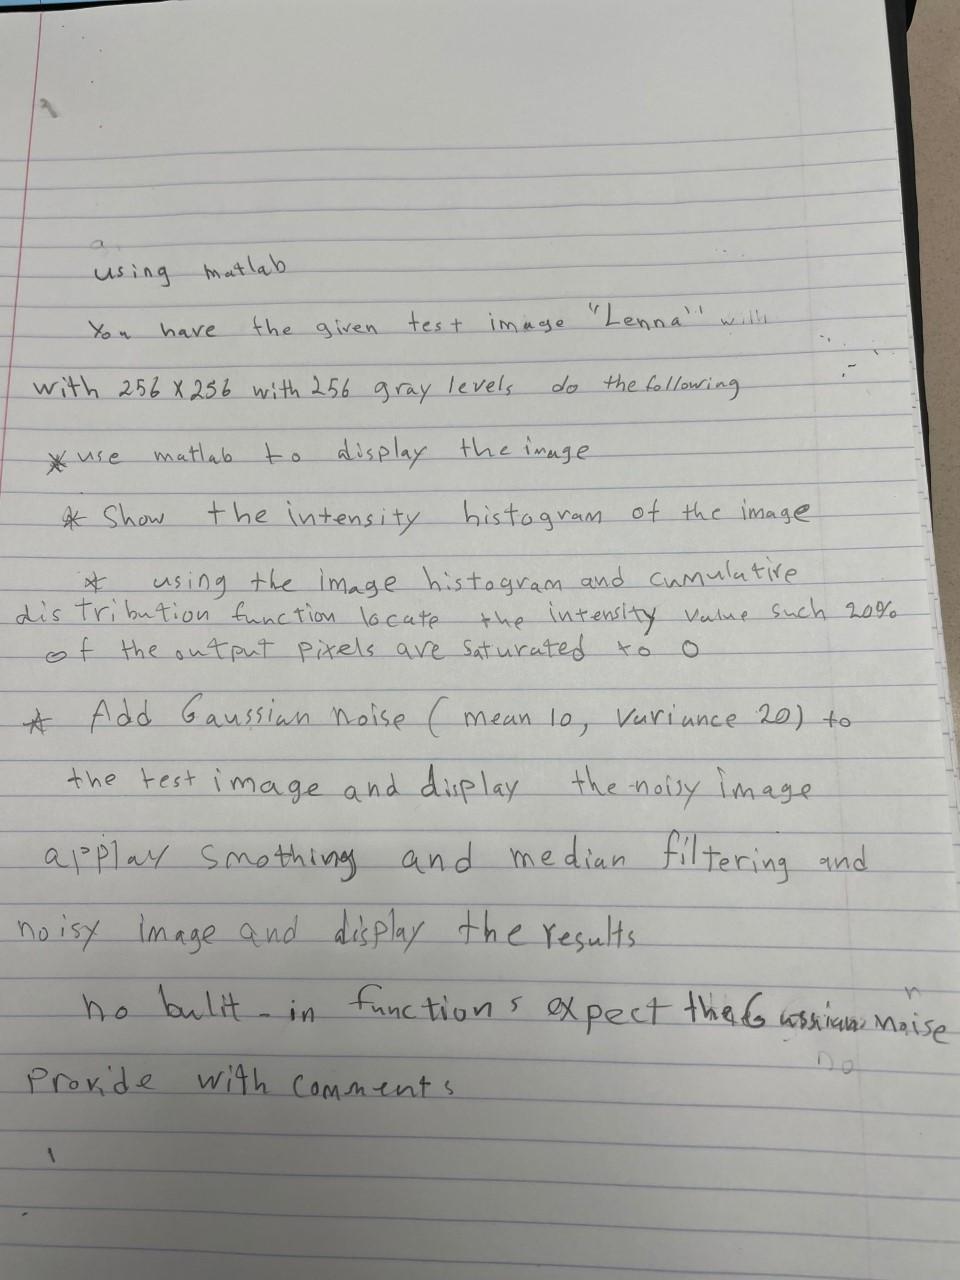 using matlab
You have the given test image "Lenna" will
with 256 X 256 with 256 gray levels do the following
* use matlab to display the image
* Show the intensity histogram of the image
* using the image histogram and cumulative
distribution function locate the intensity value such 20%
of the output pixels are saturated to 0
* Add Gaussian noise (mean 10, variance 20) to
the test image and display the noisy image
applay smothing and median filtering and
noisy image and display the results
no bulit-in functions expect the Gussian noise
Provide with comments